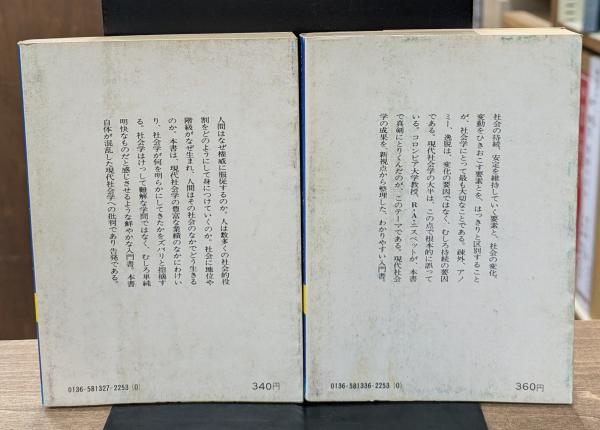 人間はなぜ権威に服従するのか。人は数多くの社会的役
割をどのようにして身につけていくのか。社会に地位や
階級がなぜ生まれ、人間はその社会のなかでどう生きる
のか。本書は、現代社会学の豊富な業績のなかにわけい
り、社会学が何を明らかにしてきたかをズバリと指摘す
る。社会学はけっして難解な学問ではなく、むしろ単純
明快なものだと感じさせるような鮮やかな入門書。本書
自体が混乱した現代社会学への批判であり告発である。
0136-581327-2253(0)
340円
社会の持続、安定を維持していく要素と、社会の変化、
変動をひきおこす要素とを、はっきりと区別すること
が、社会学にとって最も大切なことである。疎外、アノ
ミー、逸脱は、変化の要因ではなく、むしろ持続の要因
である。現代社会学の大半は、この点で根本的に誤って
いる。コロンビア大学教授、R・A・ニスベットが、本書
で真剣にとりくんだのが、このテーマである。現代社会
学の成果を、新視点から整理した、わかりやすい入門書。
0136-581336-2253(0)
360円